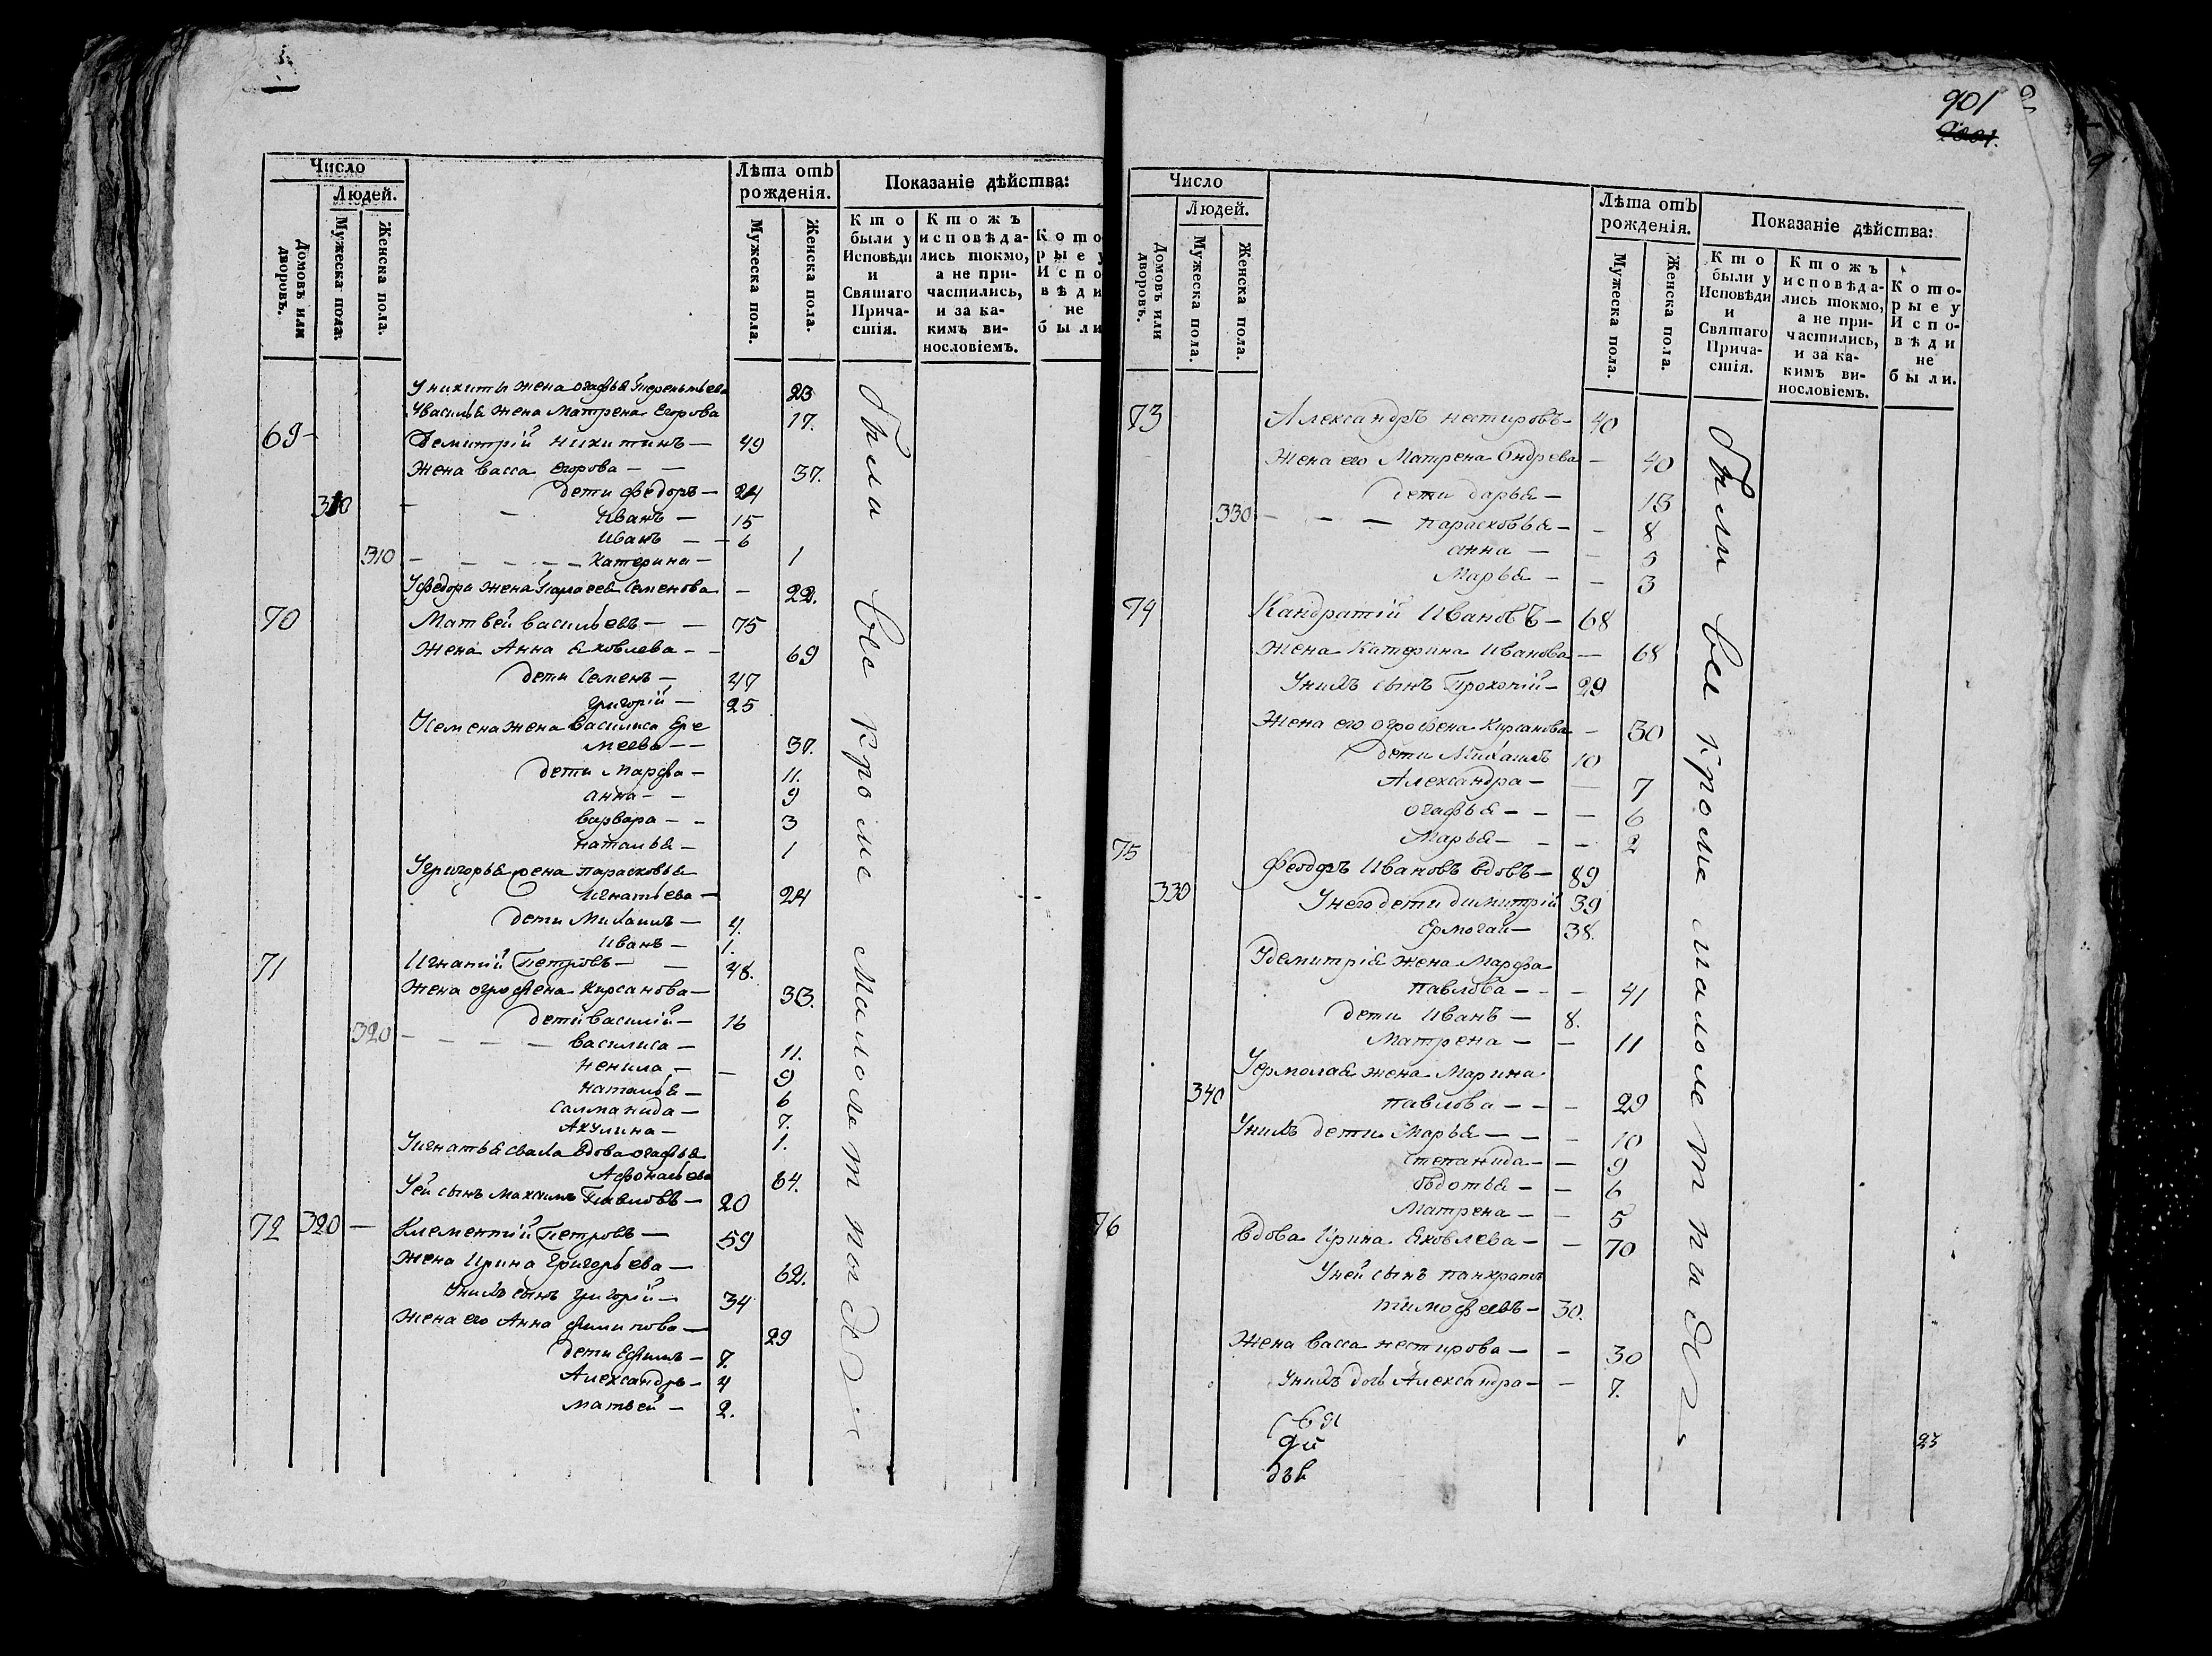 Число
Людей.
Домовъ или дворовъ.
Мужеска пола.
Женска пола.
Лѣта отъ рожденія.
Мужеска пола.
Женска пола.
Показаніе дѣйства:
Кто были у Исповѣди и Святаго Причастія.
Ктожъ исповѣдались токмо, а не причастились, и за какимъ винословіемъ.
Которые у Исповѣди не были
Уникиты жена огафья Терентьева 23
Увасилья жена матрена Егорова 17.
69 Демитрій никитинъ — 49
Жена васса егорова — — 37.
310 дети федоръ — 24
Иванъ — 15
Иванъ — — 6
310 — — — — — Катерина — 1
Уфедора жена Семенова — 22.
70 Матвей васильевъ — — 75
Жена Анна Яковлева — — 69
дети Семенъ — 47
григорій — 25
Усемена жена василиса Ере
меева — — 37.
дети марфа — 11.
анна — — 9
варвара — — 3
наталья — 1
Угригорья жена парасковья
Игнатьева — 24
дети михаилъ — 4.
иванъ — 1.
71 Игнатій Петровъ — — 48.
Жена огрофена Кирсанова — 33.
дети василій — 16
320 — — — — василиса — 11.
ненила — — 9
наталья — 6
саламанида — 7.
Акулина — 1.
Уигнатья сваха вдова огафья
Афонасьева 64.
Уей сынъ максимъ Павловъ — 20
72 320 — Клементій Петровъ — 59
Жена Ирина Григорьева — 62.
Унихъ сынъ григорій — 34
Жена его Анна филипова — 29
дети Ефимъ — 7.
Александръ — 4
матвей — 2.
были все кроме малолетныхъ
901
Число
Людей.
Домовъ или дворовъ.
Мужеска пола.
Женска пола.
Лѣта отъ рожденія.
Мужеска пола.
Женска пола.
Показаніе дѣйства:
Кто были у Исповѣди и Святаго Причастія.
Ктожъ исповѣдались токмо, а не причастились, и за какимъ винословіемъ.
Которые у Исповѣди не были.
73 Александръ нестировъ — 40
Жена его Матрена Ондрева — 40
дети дарья — 13
330 — — — парасковья — — 8
анна — — 5
Марья — — 3
74 Кандратій Ивановъ — 68
Жена Катерина Иванова — 68
Унихъ сынъ Прокопій — 29
Жена его огрофена Кирсанова — 30
дети Михаилъ 10
Александра — — 7
огафья — — — 6
Марья — — — 2
75 Феодоръ Ивановъ вдовъ — 89
330 Унего дети димитрій 39
Ермолай — 38.
Удемитрія жена Марфа
павлова — — — 41
дети Иванъ — 8.
Матрена — — 11
Уермолая жена Марина
340 павлова — — — 29
Унихъ дети Марья — — — 10
степанида — — 9
овдотья — — 6
Матрена — — 5
76 вдова Ирина Яковлева — — 70
Уней сынъ панкратъ
тимофеевъ — 30.
Жена васса нестирова — — 30
Унихъ дочь Александра — — 7.
были все кроме малолетныхъ
23